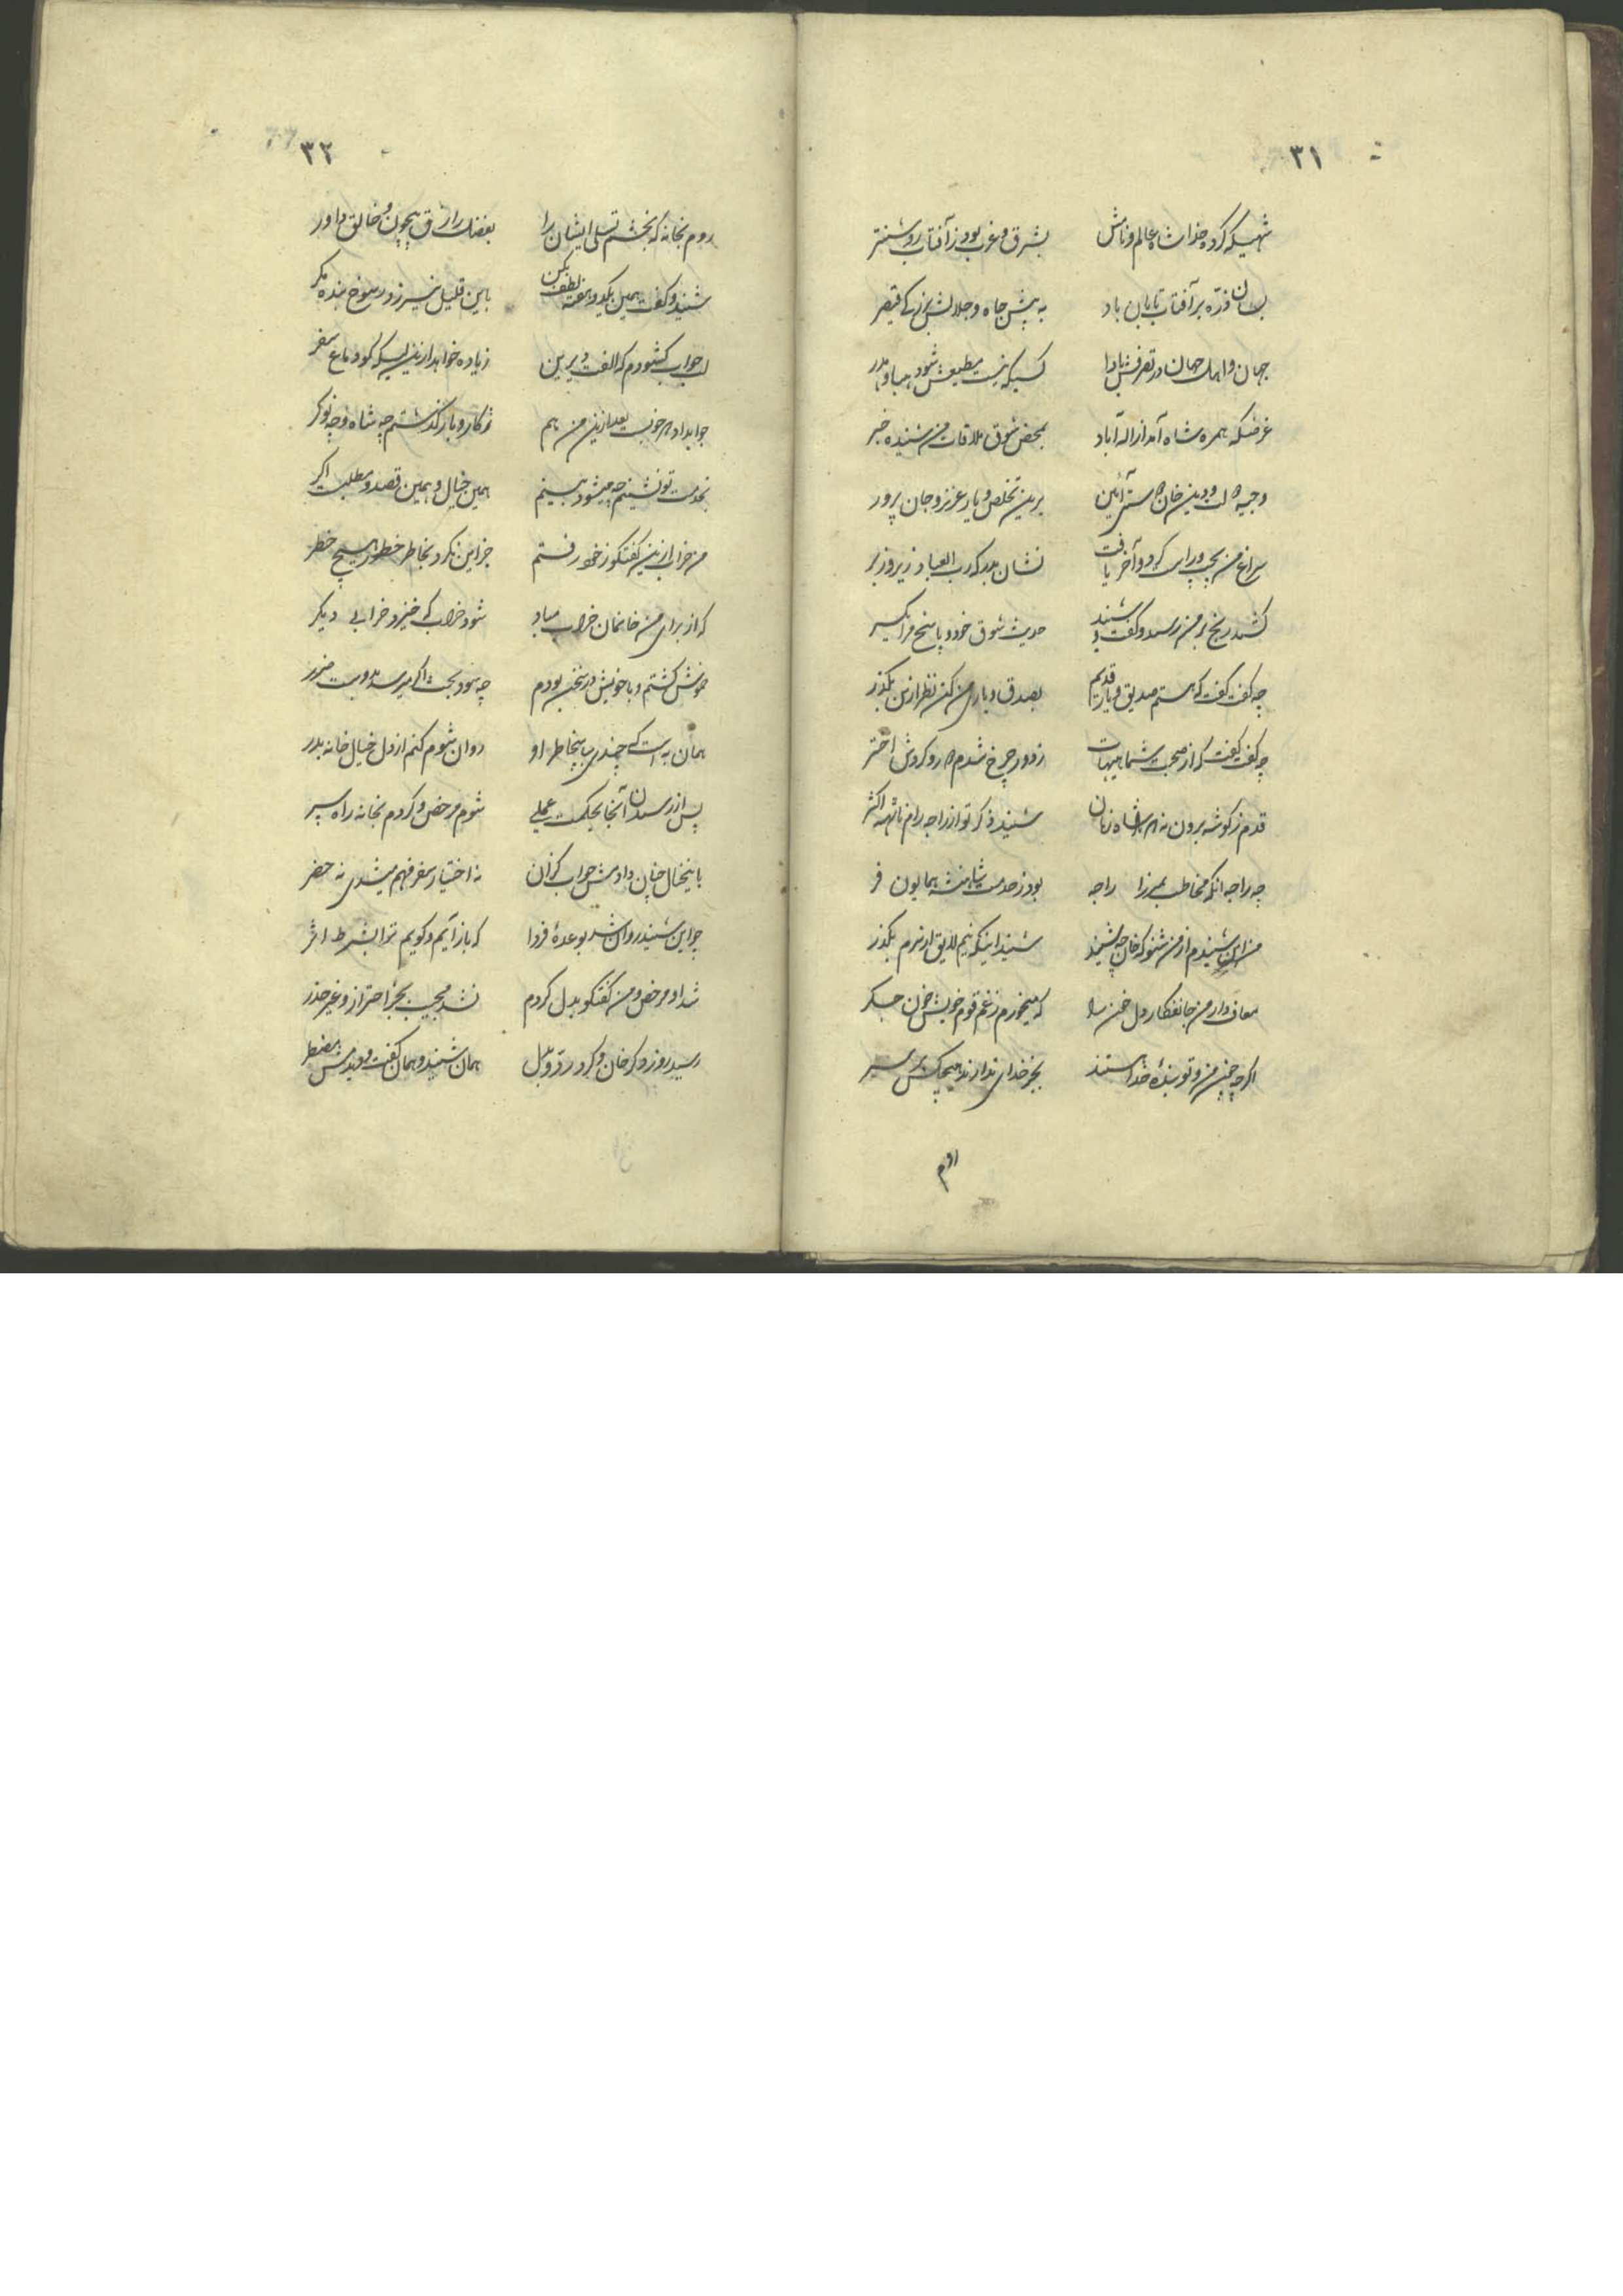 ۳۱
شهیکه کرده خدا شاه عالم و نامش بشرق و غرب بود ز آفتاب روشنتر
بسان ذره بر آفتاب تابان باد به پیش جاه و جلالش قیصر
جهان و اهل جهان در تصرفش بادا کسیکه نیست مطیعش شود هبا و هدر
غرضکه همره شاه آمد از اله آباد بمحض شوق ملاقات من شنیده خبر
وجیه و دین خان آئین برین تخلص و یار عزیز و جان پرور
سراغ من بچپ و راست کرد و آخر یافت نشان رب العباد زیر و زبر
کشید رنج و بر من رسید و گفت و شنید حدیث شوق خود و پاسخ
چه گفت گفت که هستم صدیق و یار قدیم بصدق و یاری من کن نظر ازین بگذر
چه گفت گفت که از صحبت شما هیهات ز دور چرخ شدم و گردش اختر
قدم ز گوشه برون نه شاه زمان شنید ذکر تو از راجه رام ناتهه اکثر
چه راجه آنکه مخاطب بمیرزا راجه بود ز حدمت شاهنشه همایون فر
من این شنیدم از من شنو که خان چه شنید شنید اینکه نیم لایق ارم بگذر
معاف دار من جانفگار دل خون را که میخورم ز غم قوم خویش خون جگر
اگر چه جز من و تو بنده خدا هستند بجز خدای ندارند هیچکس بر سر
روم
۳۲
روم بخانه که بخشم تسلی ایشان را بفضل رازق بیچون و خالق داور
شنید و گفت همین یکدو هفته لطف بکن باین قلیل نیرزد رسوخ بنده مگر
جواب گشودم که الفت دیرین زیاده خواهد ازین لیک کو دماغ سفر
جوابداد خوبست بعد ازین من هم ز کار و بار گذشتم چه شاه و چه نوکر
بخدمت تو نشینم چه میشود بینم همین خیال و همین قصد و مطلبست اگر
من خراب ازین گفتگو ز خود رفتم جز این نکرد بخاطر خطور هیچ خطر
که از برای من خانمان خراب مباد شود خراب که خیزد خرابی دیگر
خموش گشتم و با خویش در سخن بودم چه سود بحث اگر میرسد بدوست ضرر
همان به است که چندی بپاسخاطر او روان شوم کنم از دل خیال خانه بدر
پس از رسیدن آنجا بحکمت عملی شوم مرخص و گردم بخانه راه سپر
باینخیال چنان دادمش جواب کزان نه اختیار سفر فهم میشدی نه حضر
چو این شنید روان شد بوعده فردا که باز آیم و گویم ترا بشرط اثر
شد او مرخص و من گفتگو بدل کردم نشد مجیب بجز احتراز و غیر حذر
رسید روز دگر خان و کرد رد و بدل همان شنید و همان گفت و دیدمش مضطر